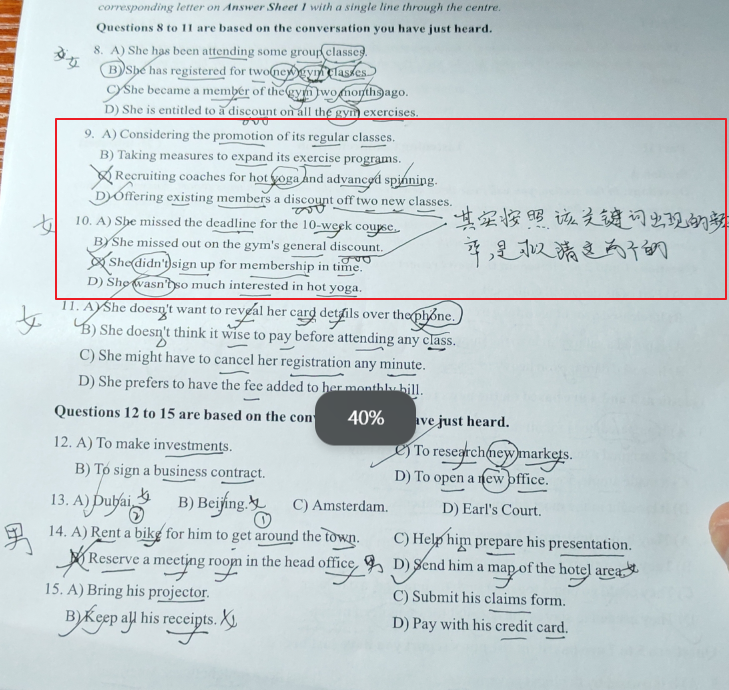 corresponding letter on Answer Sheet 1 with a single line through the centre.
Questions 8 to 11 are based on the conversation you have just heard.
女
8. A) She has been attending some group classes.
B) She has registered for two new gym classes.
C) She became a member of the gym two months ago.
D) She is entitled to a discount on all the gym exercises.
9. A) Considering the promotion of its regular classes.
B) Taking measures to expand its exercise programs.
C) Recruiting coaches for hot yoga and advanced spinning.
D) Offering existing members a discount off two new classes.
女
10. A) She missed the deadline for the 10-week course.
B) She missed out on the gym's general discount.
C) She didn't sign up for membership in time.
D) She wasn't so much interested in hot yoga.
其实按照该关键词出现的频
率,是可以猜这两个的
女
11. A) She doesn't want to reveal her card details over the phone.
B) She doesn't think it wise to pay before attending any class.
C) She might have to cancel her registration any minute.
D) She prefers to have the fee added to her monthly bill.
Questions 12 to 15 are based on the con ave just heard.
40%
12. A) To make investments.
B) To sign a business contract.
C) To research new markets.
D) To open a new office.
13. A) Dubai. 女 B) Beijing. 女 C) Amsterdam. D) Earl's Court.
② ①
男
14. A) Rent a bike for him to get around the town.
B) Reserve a meeting room in the head office. 男
C) Help him prepare his presentation.
D) Send him a map of the hotel area. 女
15. A) Bring his projector.
B) Keep all his receipts.
C) Submit his claims form.
D) Pay with his credit card.